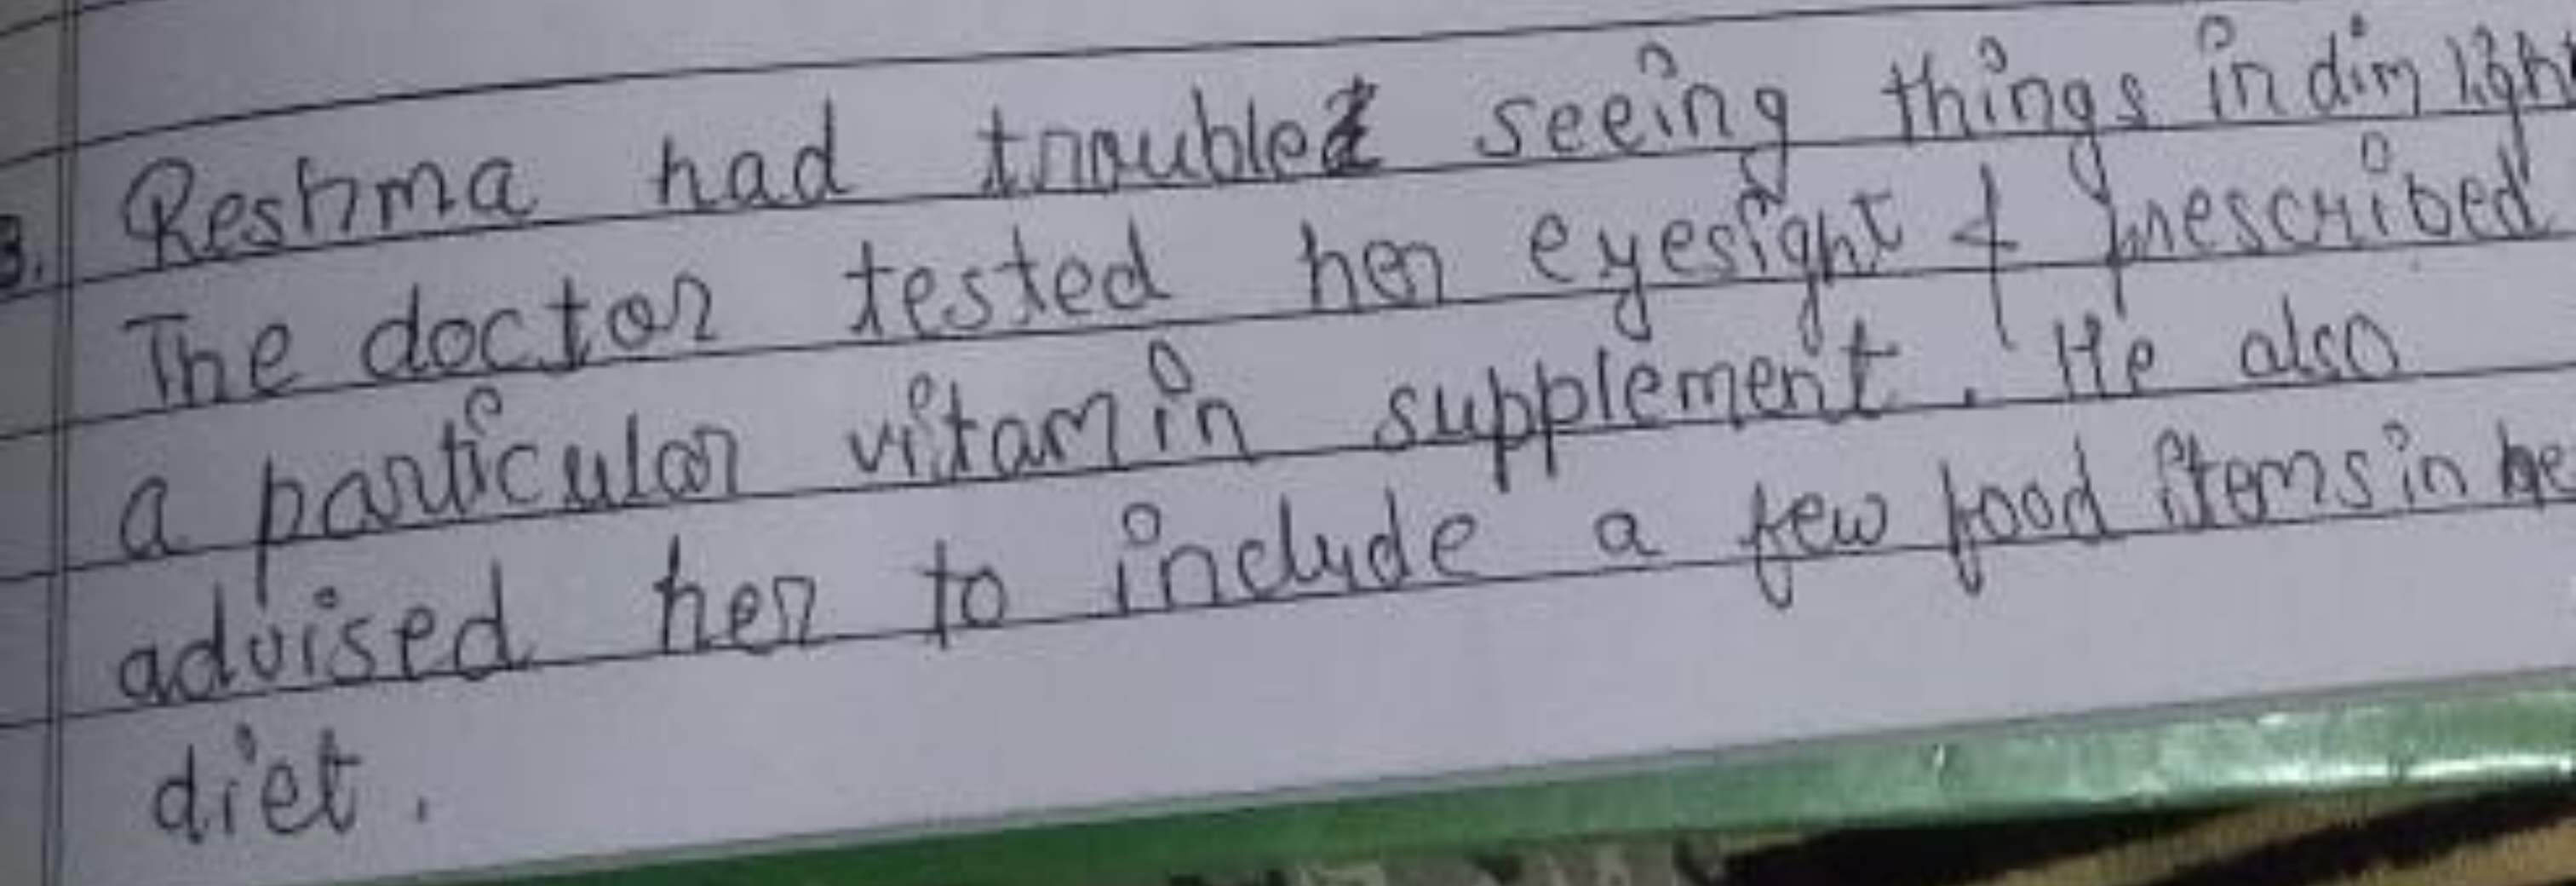 3. Reshma had trouble seeing things in dim light
The doctor tested her eyesight & prescribed
a particular vitamin supplement. He also
advised her to include a few food items in he
diet.